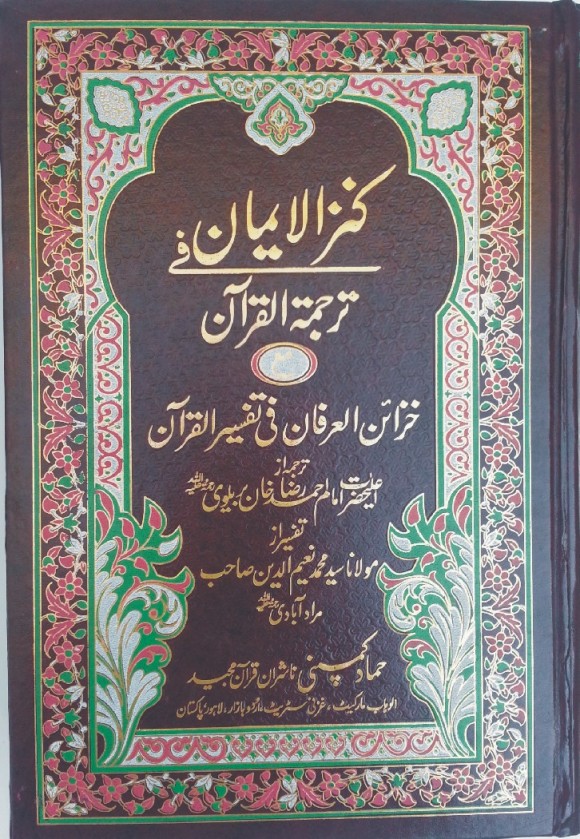 کنز الایمان فی
ترجمۃ القرآن
مع
خزائن العرفان فی تفسیر القرآن
ترجمہ از
اعلیٰحضرت امام احمد رضا خان بریلوی
تفسیر از
مولانا سید محمد نعیم الدین صاحب
مراد آبادی
حماد کمپنی ناشران قرآن مجید
الوہاب مارکیٹ، غزنی سٹریٹ، اردو بازار، لاہور پاکستان